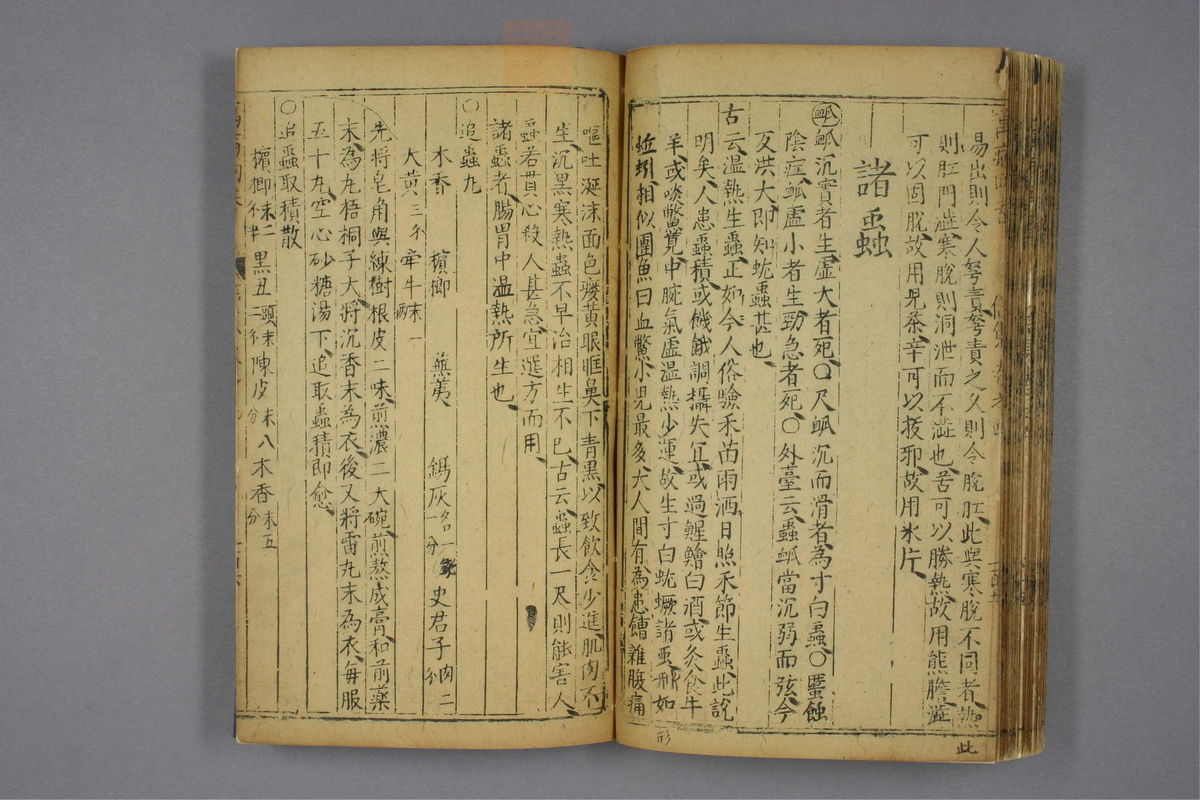 易出則令人弩責弩責之久則令脫肛此與寒脫不同者熱
則肛門澁寒脫則洞泄而不澁也苦可以勝熱故用熊膽澁
可以固脫故用児茶辛可以拔邪故用氷片
諸䖝
䘑䘑沉實者生虛大者死〇尺䘑沉而滑者為寸白蟲〇䘌蝕
陰症䘑虛小者生勁急者死〇外臺云蟲䘑當沉弱而弦今
反洪大即知蚘蟲甚也
古云温熱生蟲正如今人俗驗禾苗雨洒日照禾節生蟲此說
明矣人患蟲積或饑餓調攝失冝或過鯹鱠白酒或灸食牛
羊或啖鱉莧中脘氣虛温熱少運故生寸白蚘蟩諸䖝形如
蚯蚓相似團魚曰血鱉小児最多大人間有為患饋雜腹痛
形
此
嘔吐涎沫面色痿黃眼眶鼻下青黑以致飲食少進肌肉不
生沉黑寒熱蟲不早治相生不已古云蟲長一尺則能害人
蟲若貫心殺人甚急宜遣方而用
諸蟲者腸胃中温熱所生也
〇追蟲丸
木香 檳榔 蕪荑 錫灰各一分 史君子肉二
大黃三 牽牛末一
先將皂角與練樹根皮二味煎濃二大碗煎熬成膏和前藥
末為丸梧桐子大將沉香末為衣後又將雷丸末為衣每服
五十丸空心砂糖湯下追取蟲積即愈
〇追蟲取積散
檳榔末二 半 黑丑頭末二 陳皮末八分 木香末五分